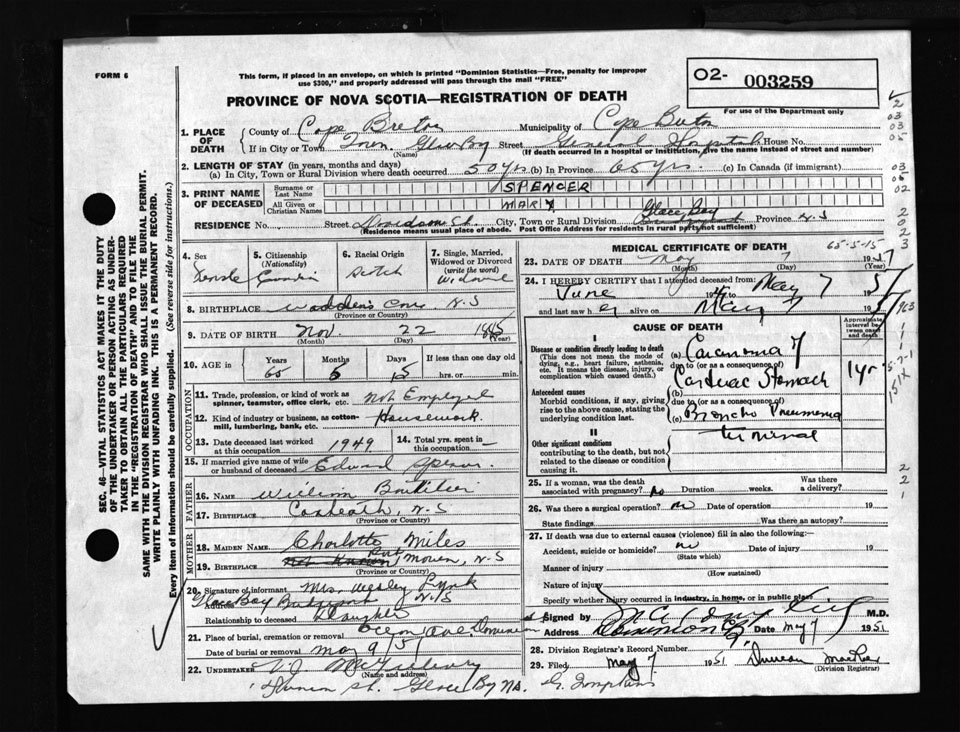 FORM 6
This form, if placed in an envelope, on which is printed "Dominion Statistics—Free, penalty for improper
use $300," and properly addressed will pass through the mail "FREE"
O2- 003259
For use of the Department only
PROVINCE OF NOVA SCOTIA—REGISTRATION OF DEATH
1. PLACE OF DEATH
County of Cape Breton Municipality of Cape Breton
If in City or Town Town Glace Bay Street General Hospital House No.
(Name) (If death occurred in a hospital or institution, give the name instead of street and number)
2. LENGTH OF STAY (in years, months and days)
(a) In City, Town or Rural Division where death occurred 50 yrs (b) In Province 65 yrs. (c) In Canada (if immigrant)
3. PRINT NAME OF DECEASED
Surname or Last Name SPENCER
All Given or Christian Names MARY
RESIDENCE No. Street City, Town or Rural Division Glace Bay Province N.S
(Residence means usual place of abode. Post Office Address for residents in rural parts not sufficient)
4. Sex Female
5. Citizenship (Nationality)
6. Racial Origin
7. Single, Married, Widowed or Divorced (write the word)
8. BIRTHPLACE N.S
(Province or Country)
9. DATE OF BIRTH Nov. 22 1885
(Month) (Day) (Year)
10. AGE in Years Months Days If less than one day old
65 5 15 hrs. or min.
OCCUPATION
11. Trade, profession, or kind of work as spinner, teamster, office clerk, etc. Not Employed
12. Kind of industry or business, as cotton-mill, lumbering, bank, etc. Housework.
13. Date deceased last worked at this occupation 1949
14. Total yrs. spent in this occupation —
15. If married give name of wife or husband of deceased Edward Spencer
FATHER
16. NAME William Boutilier
17. BIRTHPLACE N.S
(Province or Country)
MOTHER
18. MAIDEN NAME Charlotte Miles
19. BIRTHPLACE Not Known Port Morien, N.S
(Province or Country)
20. Signature of informant Mrs. Wesley Lynk
Address Glace Bay N.S
Relationship to deceased Daughter
21. Place of burial, cremation or removal Ocean Ave. Dominion
Date of burial or removal May 9/51
22. UNDERTAKER V.J. McGillivary
(Name and address)
St. Glace Bay NS.
MEDICAL CERTIFICATE OF DEATH
65-5-15
23. DATE OF DEATH May 7 1951
(Month) (Day) (Year)
24. I HEREBY CERTIFY that I attended deceased from:
June to May 7 1951
and last saw her alive on May 7
CAUSE OF DEATH
Approximate interval between onset and death
I
Disease or condition directly leading to death
(This does not mean the mode of dying, e.g., heart failure, asthenia, etc. It means the disease, injury, or complication which caused death.)
(a) Carcinoma of
due to (or as a consequence of)
Cardiac Stomach 1 yr
Antecedent causes
Morbid conditions, if any, giving rise to the above cause, stating the underlying condition last.
(b)
due to (or as a consequence of)
(c) Broncho Pneumonia
terminal
II
Other significant conditions
contributing to the death, but not related to the disease or condition causing it.
25. If a woman, was the death associated with pregnancy? no Duration weeks. Was there a delivery?
26. Was there a surgical operation? no Date of operation 19
State findings Was there an autopsy?
27. If death was due to external causes (violence) fill in also the following:
Accident, suicide or homicide? no Date of injury 19
(State which)
Manner of injury
(How sustained)
Nature of injury
Specify whether injury occurred in industry, in home, or in public place
Signed by M.D.
Address Dominion Date May 7 1951
28. Division Registrar's Record Number
29. Filed May 7. 1951 Duncan MacRae
(Division Registrar)
SEC. 46—VITAL STATISTICS ACT MAKES IT THE DUTY
OF THE UNDERTAKER OR PERSON ACTING AS UNDERTAKER TO OBTAIN ALL THE PARTICULARS REQUIRED
IN THE "REGISTRATION OF DEATH" AND TO FILE THE
SAME WITH THE DIVISION REGISTRAR WHO SHALL ISSUE THE BURIAL PERMIT.
WRITE PLAINLY WITH UNFADING INK. THIS IS A PERMANENT RECORD.
Every item of information should be carefully supplied. (See reverse side for instructions.)